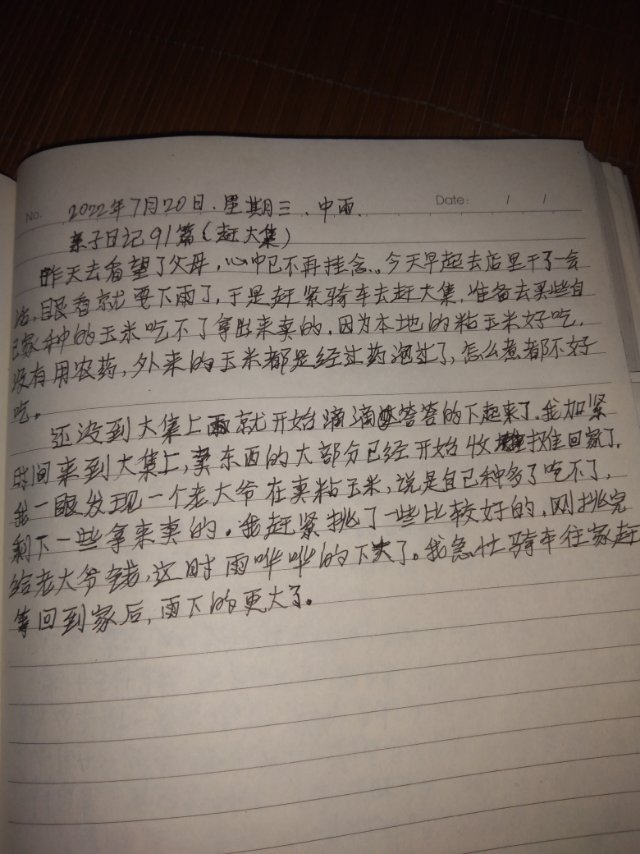 No. 2022年7月20日.星期三.中雨. Date: / /
亲子日记91篇(赶大集)
昨天去看望了父母,心中已不再挂念.。今天早起去店里干了一会
活,眼看就要下雨了,于是赶紧骑车去赶大集,准备去买些自
己家种的玉米吃不了拿出来卖的,因为本地的粘玉米好吃,
没有用农药,外来的玉米都是经过药泡过了,怎么煮都不好
吃。
还没到大集上雨就开始滴滴答答的下起来了.我加紧
时间来到大集上,卖东西的大部分已经开始收摊回家了.
我一眼发现一个老大爷在卖粘玉米,说是自己种多了吃不了,
剩下一些拿来卖的。我赶紧挑了一些比较好的,刚挑完
给老大爷钱,这时雨哗哗的下大了。我急忙骑车往家赶
等回到家后,雨下的更大了。